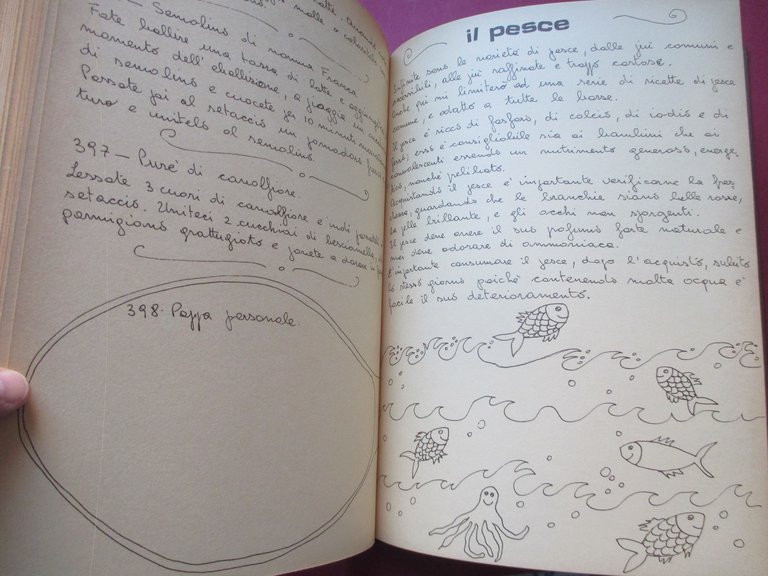 molle o
– Semolino di nonna Franca
Fate bollire una tazza di latte e aggiungete
momento dell'ebollizione, a pioggia un
di semolino e cuocete per 10 minuti
Passate poi al setaccio un pomodoro
turo e unitelo al semolino.
397 – Purè di cavolfiore.
Lessate 3 cuori di cavolfiore e indi
setaccio. Uniteci 2 cucchiai di besciamella,
parmigiano grattugiato e ponete a dorare in
398. Pappa personale.
il pesce
Infinite sono le varietà di pesce, dalle più comuni e
accessibili, alle più raffinate e troppo costose.
qui mi limiterò ad una serie di ricette di pesce
comune, e adatto a tutte le borse.
Il pesce è ricco di fosforo, di calcio, di iodio e di
esso è consigliabile sia ai bambini che ai
convalescenti essendo un nutrimento generoso, energe-
tico, nonché prelibato.
Acquistando il pesce è importante verificarne la fres-
chezza, guardando che le branchie siano belle rosse,
la pelle brillante, e gli occhi non sporgenti.
Il pesce deve avere il suo profumo forte naturale e
mai deve odorare di ammoniaca.
È importante consumare il pesce, dopo l'acquisto, subito
lo stesso giorno poiché contenendo molta acqua è
facile il suo deterioramento.